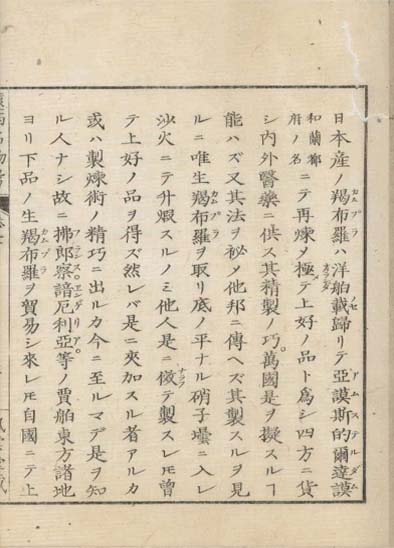 日本産ノ羯布羅ハ洋舶載歸リテ亞謨斯的爾達謨
和蘭都府ノ名ニテ再煉メ極テ上好ノ品ト爲シ四方ニ貨
シ内外醫藥ニ供ス其精製ノ巧萬國是ヲ擬スルヿ
能ハズ又其法ヲ祕メ他邦ニ傳ヘズ其製スルヲ見
ルニ唯生羯布羅ヲ取リ底ノ平ナル硝子壜ニ入レ
沙火ニテ升煆スルノミ他人是ニ傚テ製スレ𪜈曾
テ上好ノ品ヲ得ズ然レバ是ニ夾加スル者アルカ
或ハ製煉術ノ精巧ニ出ルカ今ニ至ルマデ是ヲ知
ル人ナシ故ニ拂郎察諳厄利亞等ノ賈舶東方諸地
ヨリ下品ノ生羯布羅ヲ貿易シ來レ𪜈自國ニテ上